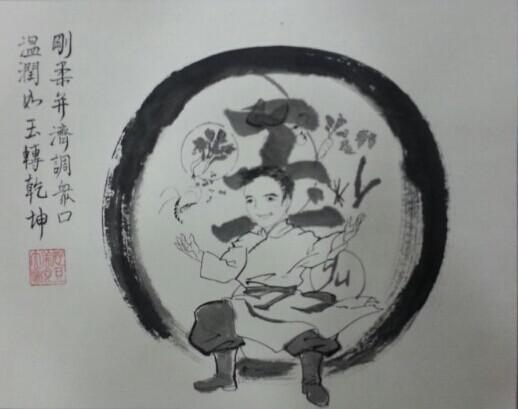 剛柔并濟調眾口
溫潤如玉轉乾坤
yu